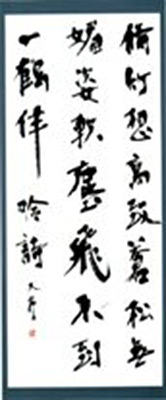 倚竹想高致蒼松無
媚姿軟塵飛不到
一鶴伴吟詩